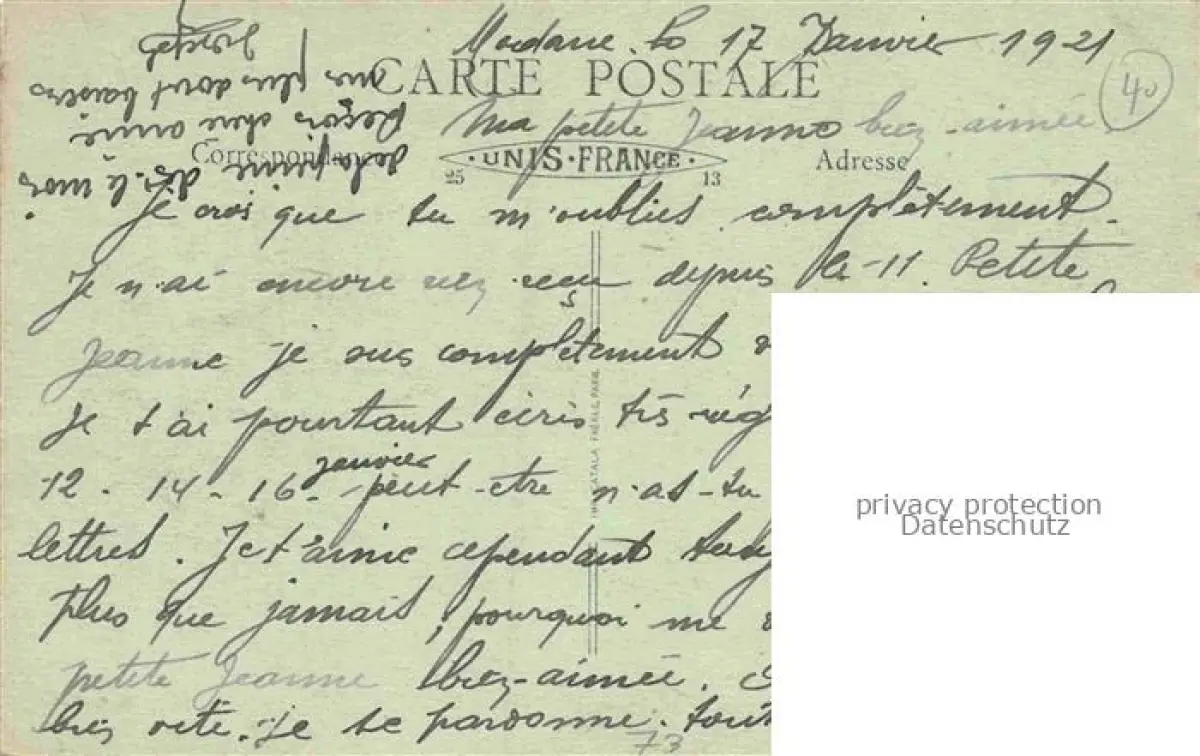 Modane. le 17 Janvier 1921
CARTE POSTALE
40
Ma petite Jeanne bien-aimée
Correspondance
UNIS·FRANCE
25 13
Adresse
Je crois que tu m'oublies complètement.
Je n'ai encore rien reçu depuis le 11. Petite
Jeanne je suis complètement
Je t'ai pourtant écris très rég
12. 14 - 16 - janvier peut-être n'as-tu
lettres. Je t'aime cependant
plus que jamais, pourquoi me
petite Jeanne bien-aimée.
bien vite. Je te pardonne. tout
73
de la peine dis-le moi
Reçois chère amie
mes plus doux baisers
Joseph
privacy protection
Datenschutz